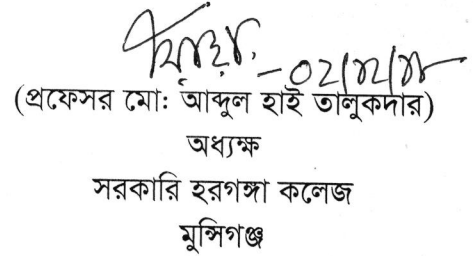 (প্রফেসর মো: আব্দুল হাই তালুকদার)
অধ্যক্ষ
সরকারি হরগঙ্গা কলেজ
মুন্সিগঞ্জ